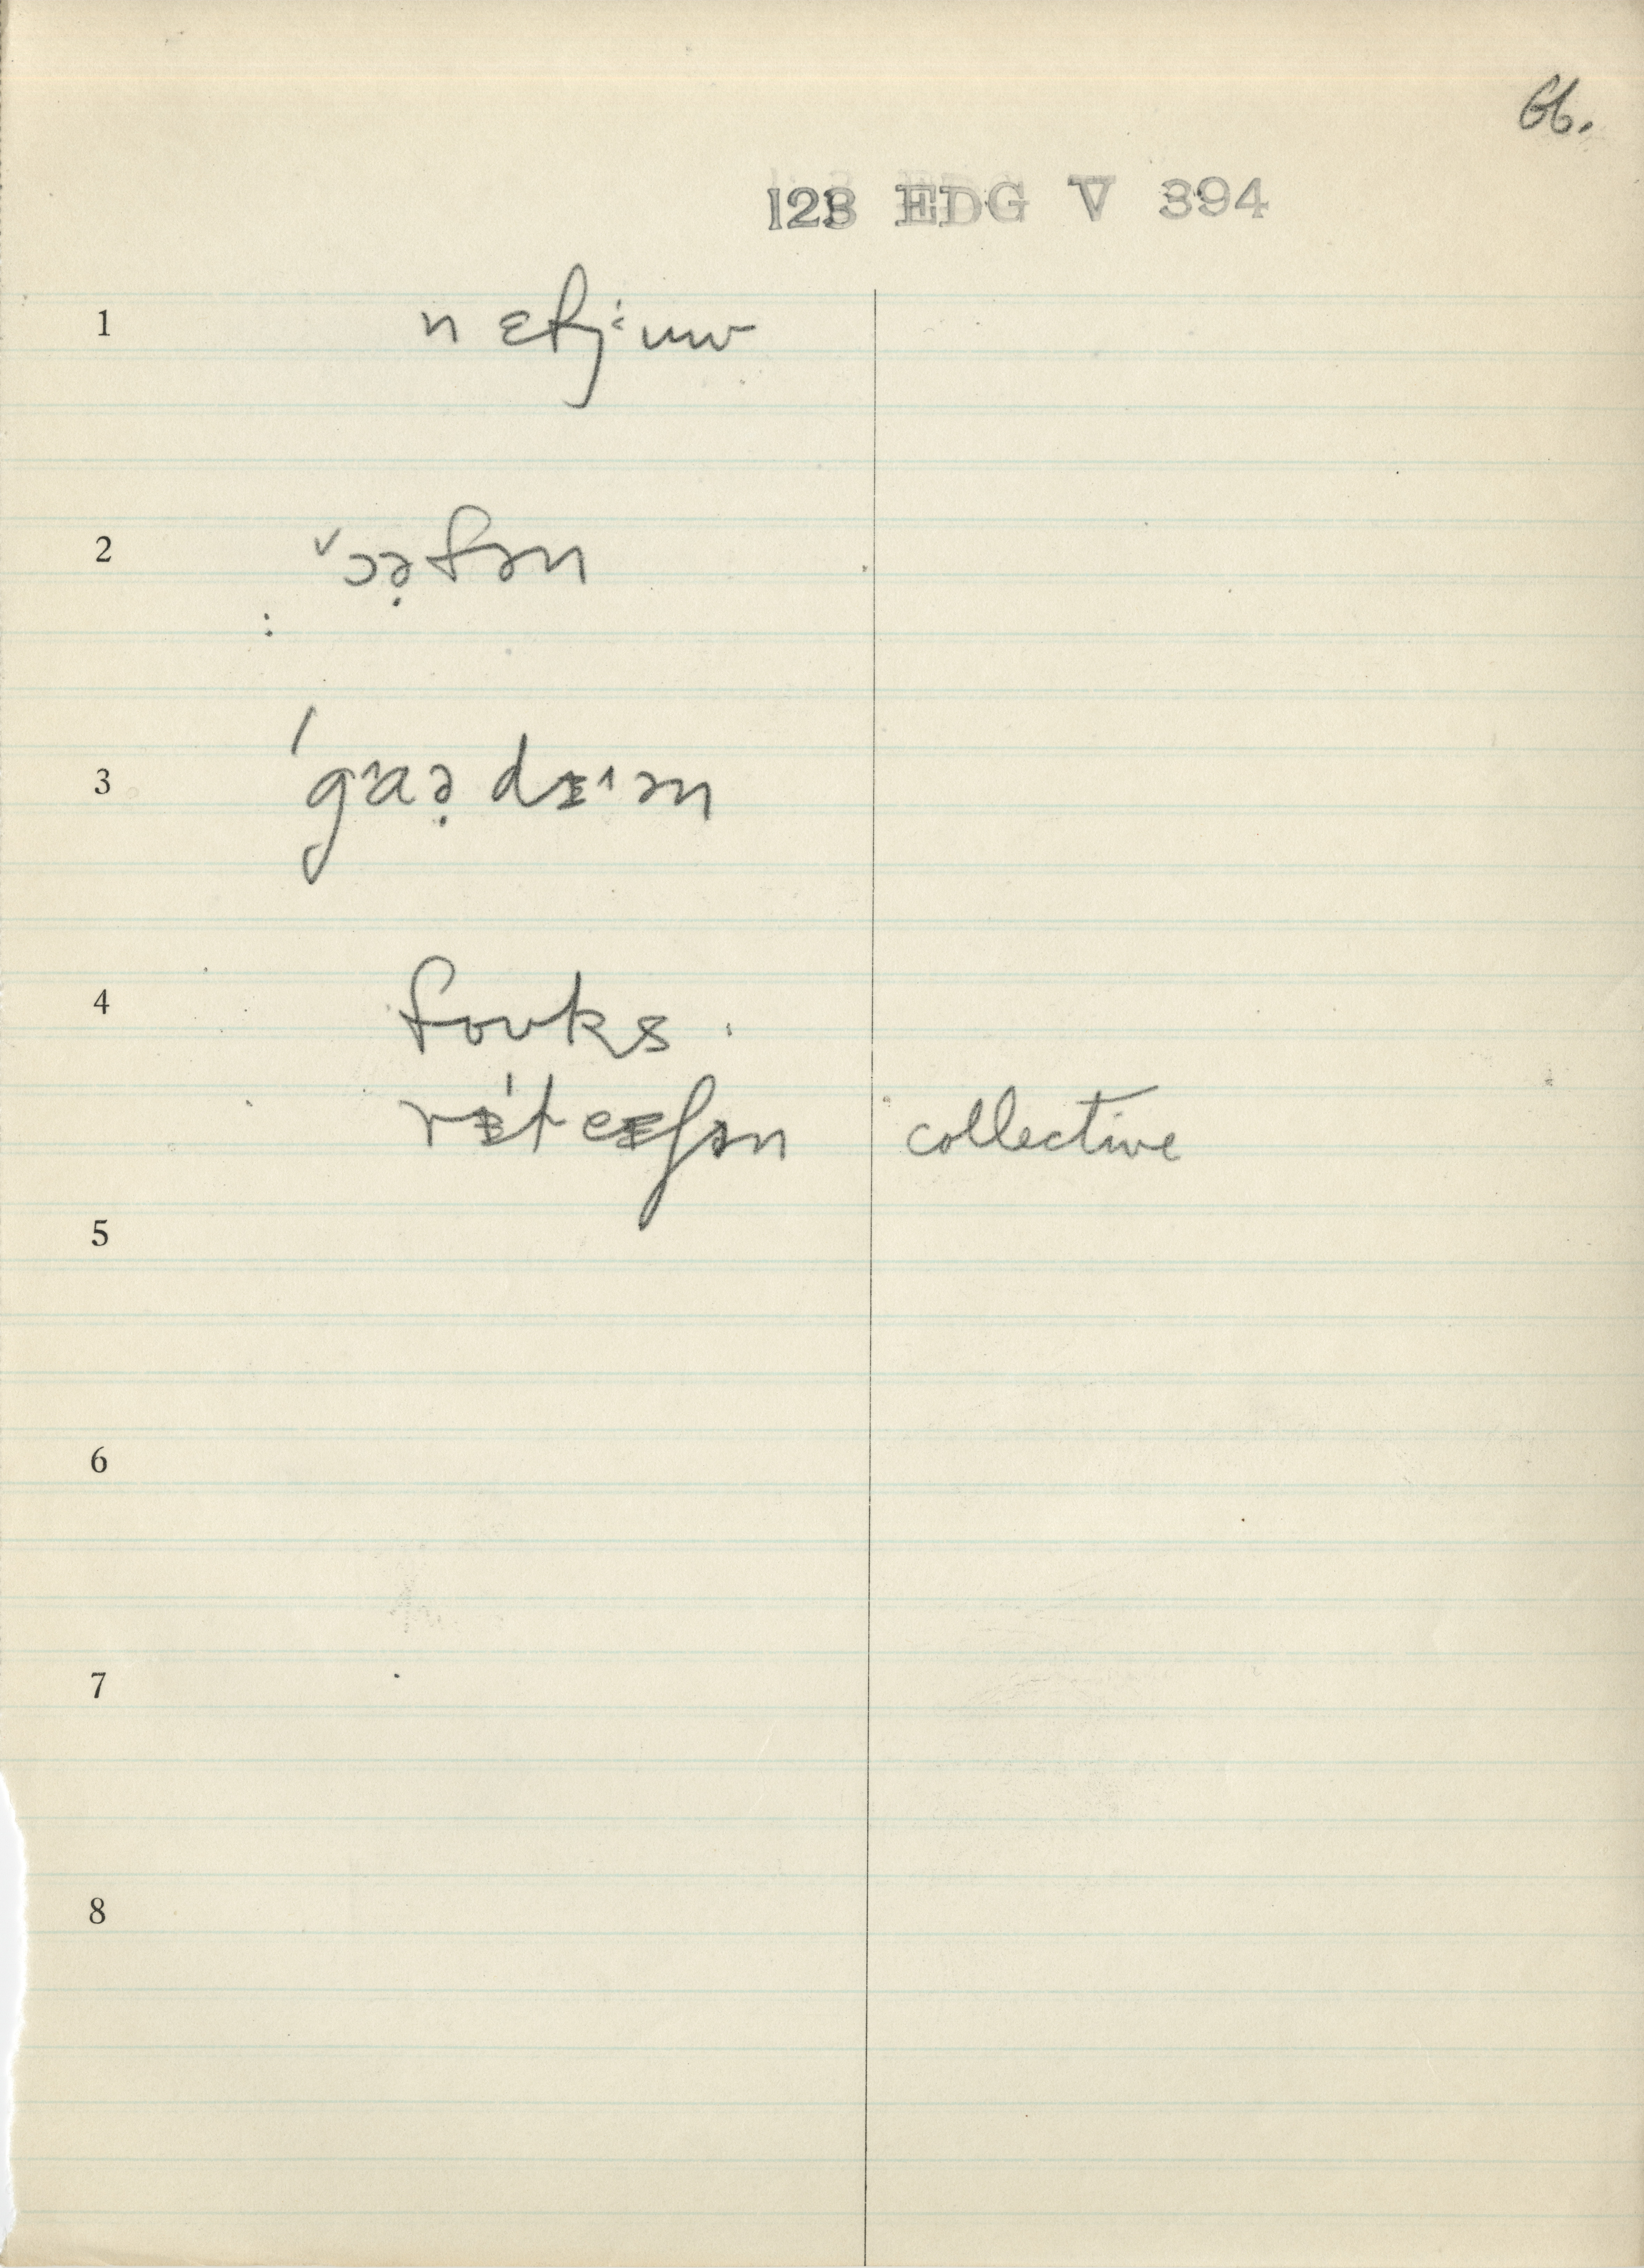 66.
123 EDG V 394
1 nɛfj:uw
2 ˅ɔə̣fən
3 ˈgˈaə̣dɪˈən
4 foʊks
rɪˈleɪʃən collective
5
6
7
8